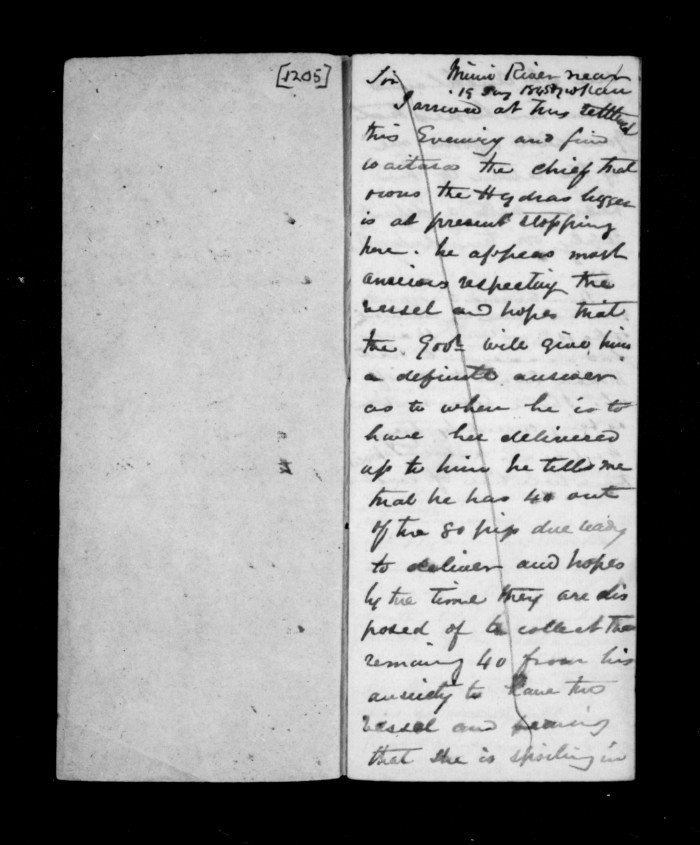 [1205]
Sir Mimi River near
19 1845
I arrived at this
this Evening and find
Waitara the chief that
owns the Hydras
is at present stopping
here. he appears most
anxious respecting the
vessel and hopes that
the Govr will give him
a definite answer
as to when he is to
have her delivered
up to him he tells me
that he has 40 out
of the 80 pigs due ready
to deliver and hopes
by the time they are dis
posed of to collect the
remaining 40 from his
anxiety to have this
vessel and hearing
that she is spoiling in